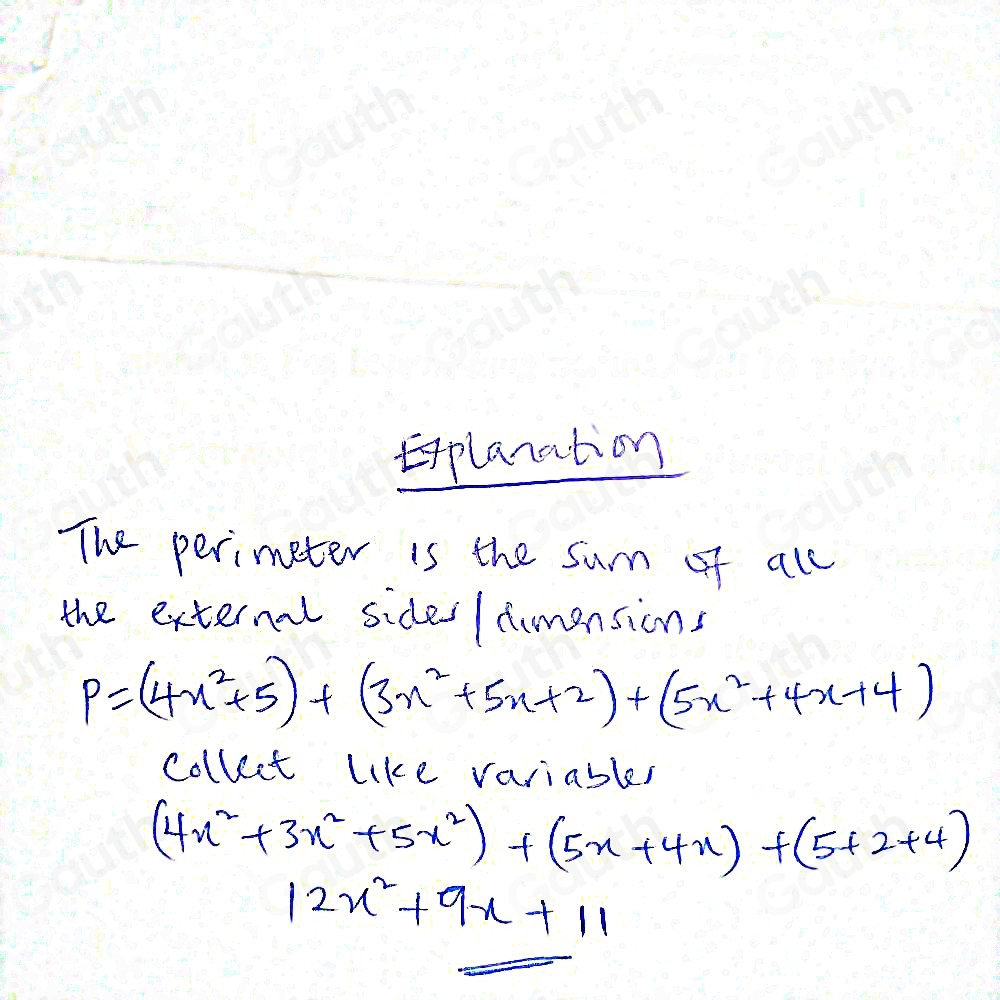 Explanation
The perimeter is the sum of all
the external sides/dimensions
P=(4x²+5)+(3x²+5x+2)+(5x²+4x+4)
Collect like variables
(4x²+3x²+5x²)+(5x+4x)+(5+2+4)
12x²+9x+11